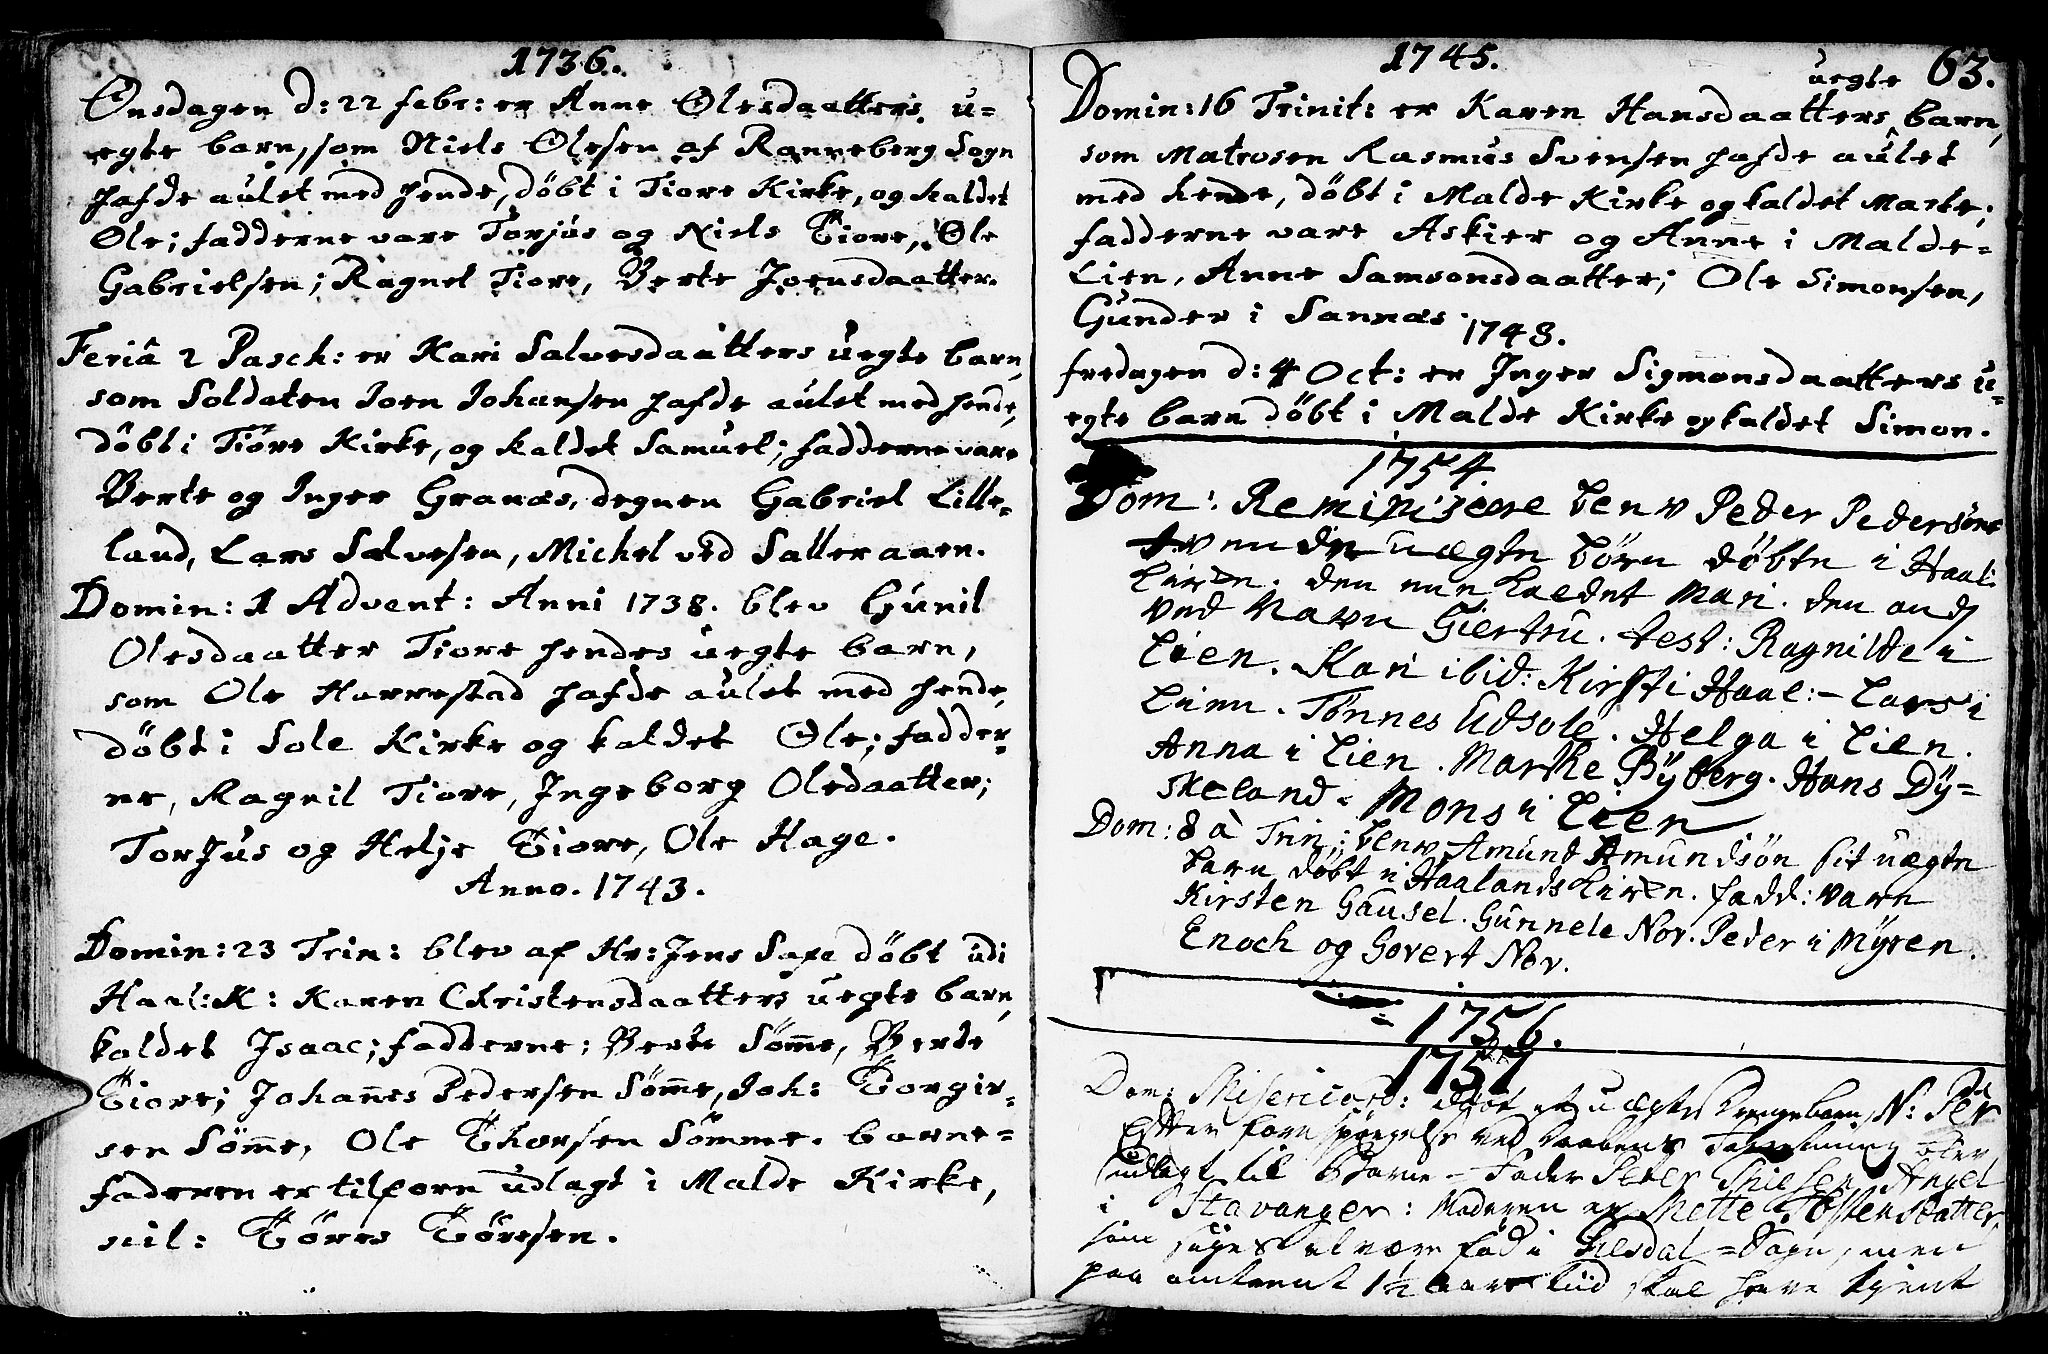 1736.
Onsdagen d: 22 febr: er Anne Olesdaatters u-
egte barn, som Niels Olesen af Ranneberg Sogn
hafde aulet med hende, döbt i Tiore Kirke, og kaldet
Ole; fadderne vare Torjus og Niels Tiore, Ole
Gabrielsen; Ragnel Tiore, Berte Joensdaatter.
Feriâ 2 Pasch: er Kari Salvesdaatters uegte barn,
som Soldaten Joen Johansen hafde aulet med hende,
döbt i Tiore Kirke, og kaldet Samuel; fadderne vare
Berte og Inger Granæs, degnen Gabriel Lille-
land, Lars Salvesen, Michel ved Salteraaen.
Domin: 1 Advent: Anni 1738. blev Gunil
Olesdaatter Tiore hendes uegte barn,
som Ole Harrestad hafde aulet med hende,
döbt i Sole Kirke og kaldet Ole; fadder-
ne, Ragnil Tiore, Ingeborg Olsdaatter;
Torjus og Helje Tiore, Ole Hage.
Anno. 1743.
Domin: 23 Trin: blev af Hr: Jens Saxe döbt udi
Haal: K: Karen Christensdaatters uegte barn,
kaldet Isaac; fadderne: Berte Söm̄e, Berte
Tiore; Johan̄es Pedersen Söm̄e, Joh: Torgir-
sen Söm̄e, Ole Thorsen Sömme. barne-
faderen er tilforn udlagt i Malde Kirke,
nil: Töres Töresen.
1745.
uegte 63.
Domin: 16 Trinit: er Karen Hansdaatters barn,
som Matrosen Rasmus Svensen hafde aulet
med hende, döbt i Malde Kirke og kaldet Marte;
fadderne vare Askier og Anne i Malde-
Lien, Anne Samsonsdaatter; Ole Simonsen,
Gunder i Sannæs.
1748.
fredagen d: 4 Oct: er Inger Sigmonsdaatters u-
egte barn döbt i Malde Kirke og kaldet Simon.
1754
Dom: Reminiscere blev Peder Pedersöns
tvende uægte börn döbte i Haal:
Kirke. den eene kaldet Mari. den and
ved Navn Giertru. test: Ragnilde i
Lien. Kari ibid: Kirst i Haal:- Lars i
Lien. Tönnes Udsole. Helga i Lien.
Anna i Lien. Marthe Byberg. Hans Dy-
skeland. Mons i Lien
Dom: 8 à Trin: blev Amund Amundsön sit uægte
barn döbt i Haalands Kirke. fadd: vare
Kirsten Gausel. Gunnele Nor. Peder i Myren.
Enoch og Govert Nor.
1756.
1757
Dom: Misericord: döbt et uægte drengebarn, N: Per
Efter forespörgelse ved daabens blev
udlagt til Barne-Fader Peder Nielsen Angel
i Stavanger: Moderen er Mette Tostensdatter,
som siges at være föd i Giesdal-Sogn, men
paa omtrent 1½ aars tiid skal have tient